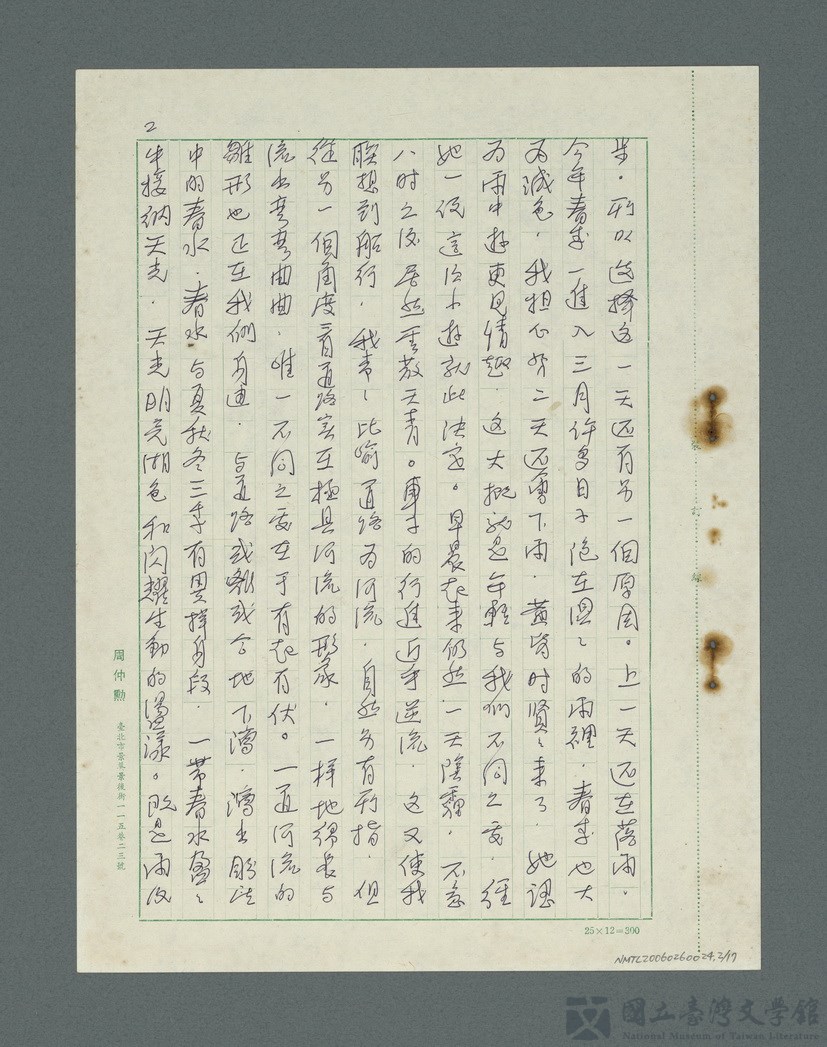 2
步．所以选擇这一天还有另一個原因。上一天还在落雨．
今年春季一進入三月許多日子總在濕〻的雨裡．春季也大
为減色．我担心第二天还會下雨．黃昏时賢〻来了．她認
为雨中遊更見情趣．这大概就是年輕与我们不同之處．經
她一說這次小遊就此決定。早晨起来仍然一天陰霾．不意
八时之後居然雲散天青。車子的行進近乎逆流．这又使我
聯想到船行．我常〻比喻道路为河流．自然另有所指．但
從另一個角度看道路实在極具河流的形象．一样地綿長与
流出弯弯曲曲．唯一不同之處在于有起有伏。一道河流的
雛形也正在我們身邊．与道路或離或合地下瀉．瀉出盼注
中的春水．春水与夏秋冬三季有異樣身段．一帶春水盈〻
生接納天光．天光明亮湖色和閃耀生動的漫漾。既是雨後
裝 訂 線
周仲勲 臺北市景美景後街一一五巷二三號
25×12=300
NMTL20060260024,2/17
國立臺灣文學館
National Museum of Taiwan Literature